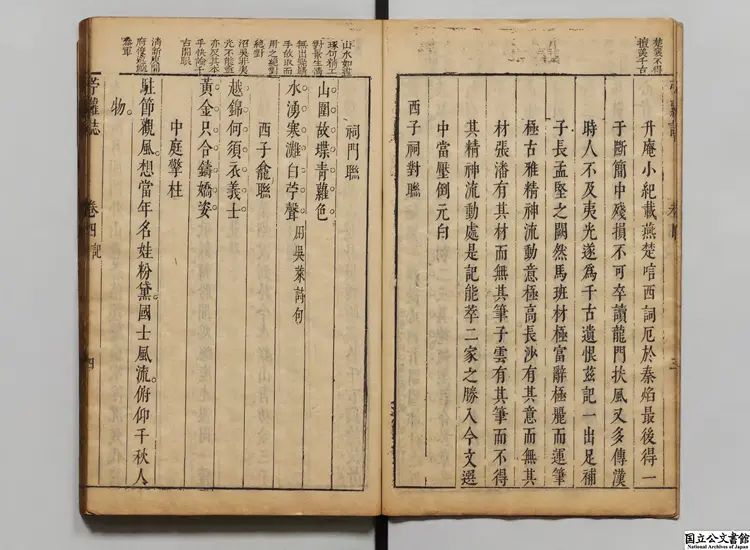 楚裳不得
擅美千古
升庵小紀載燕楚唁西詞厄於秦焰最後得一
于斷簡中殘損不可卒讀龍門扶風又多傳漢
時人不及夷光遂爲千古遺恨茲記一出足補
子長孟堅之闕然馬班材極富辭極麗而運筆
極古雅精神流動意極高長沙有其意而無其
材張潘有其材而無其筆子雲有其筆而不得
其精神流動處是記能萃二家之勝入今文選
中當壓倒元白
西子祠對聯
祠門聯
山圍故堞青蘿色
水湧寒灘白苧聲 用吳萊詩句
西子龕聯
越錦何須衣義士
黃金只合鑄嬌姿
中庭擎柱
駐節觀風想當年名娃粉黛國士風流俯仰千秋人
物
苧蘿誌
卷四 記
四
国立公文書館
National Archives of Japan